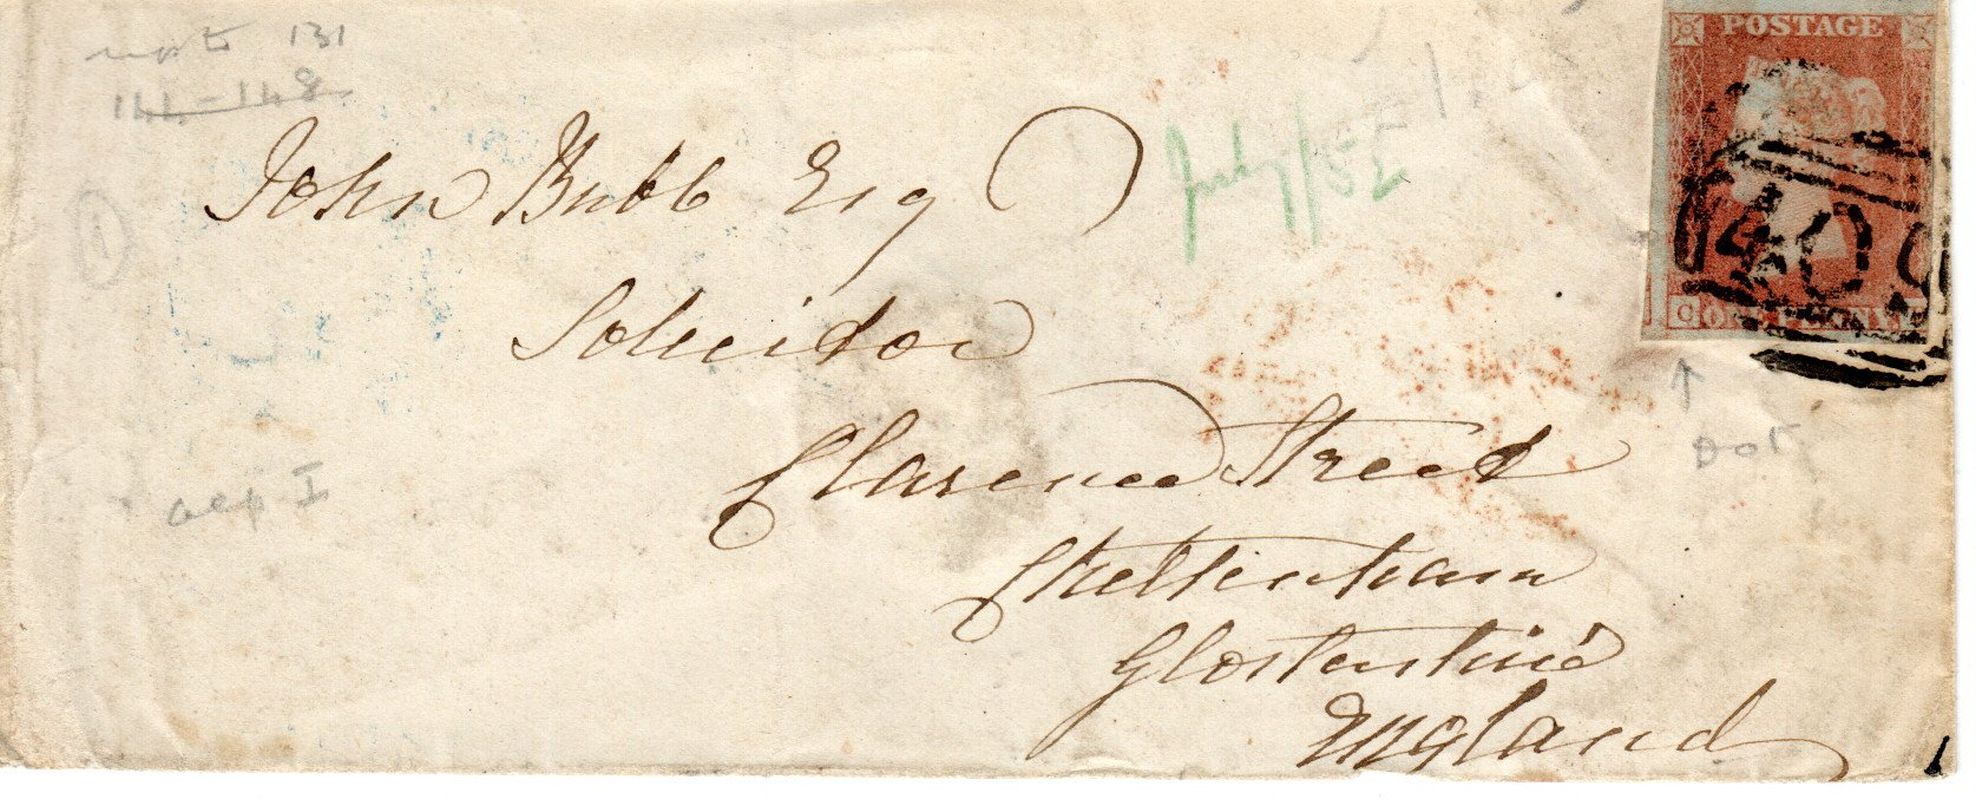 131
141-148
POSTAGE
July/52
John Bubb Esq
Solicitor
409
C ONE PENNY
1
Clarence Street
Dot
alp I
Cheltenham
Glostershire
England